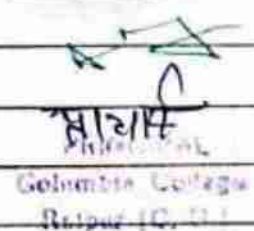 प्राचार्य
PRINCIPAL
Columbia College
Raipur (C.G.)